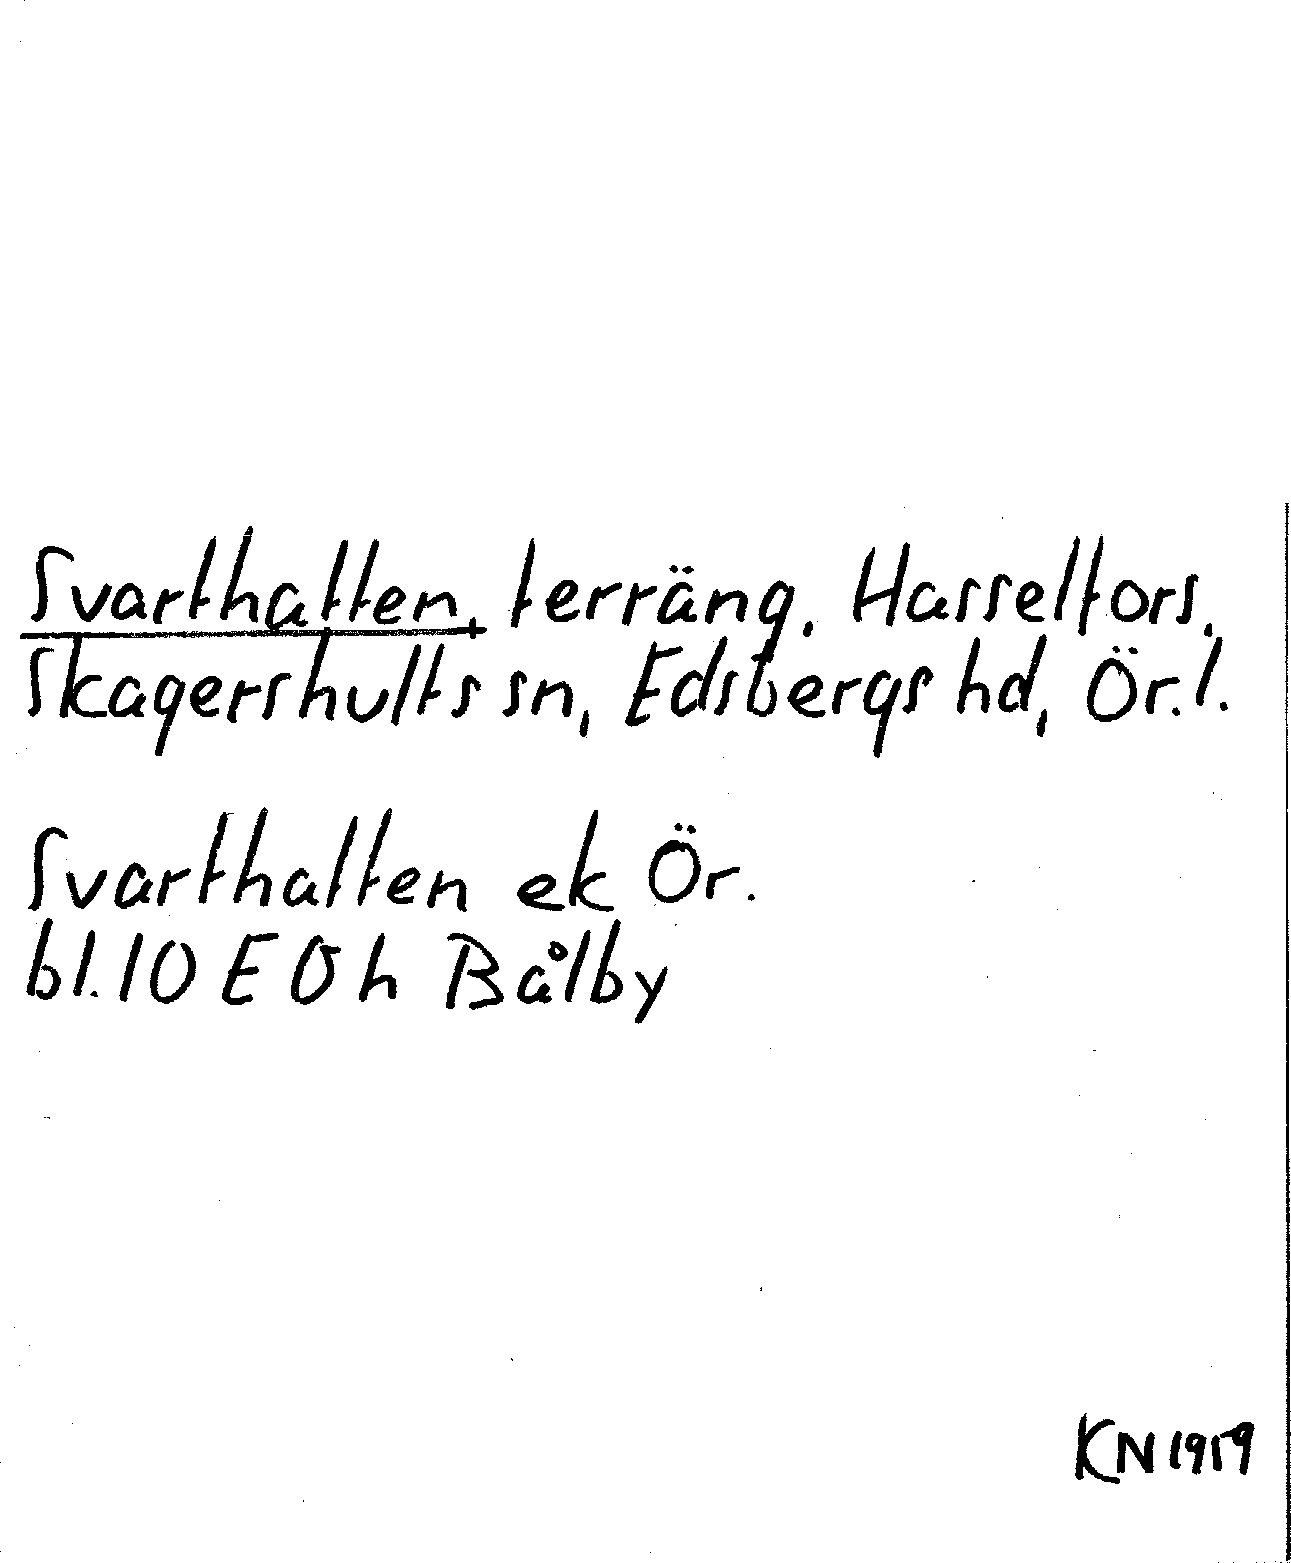 Svarthatten, terräng. Hasselfors,
Skagershults sn, Edsbergs hd, Ör. l.
Svarthatten ek Ör.
bl. 10 E 0 h Bålby
KN 1959